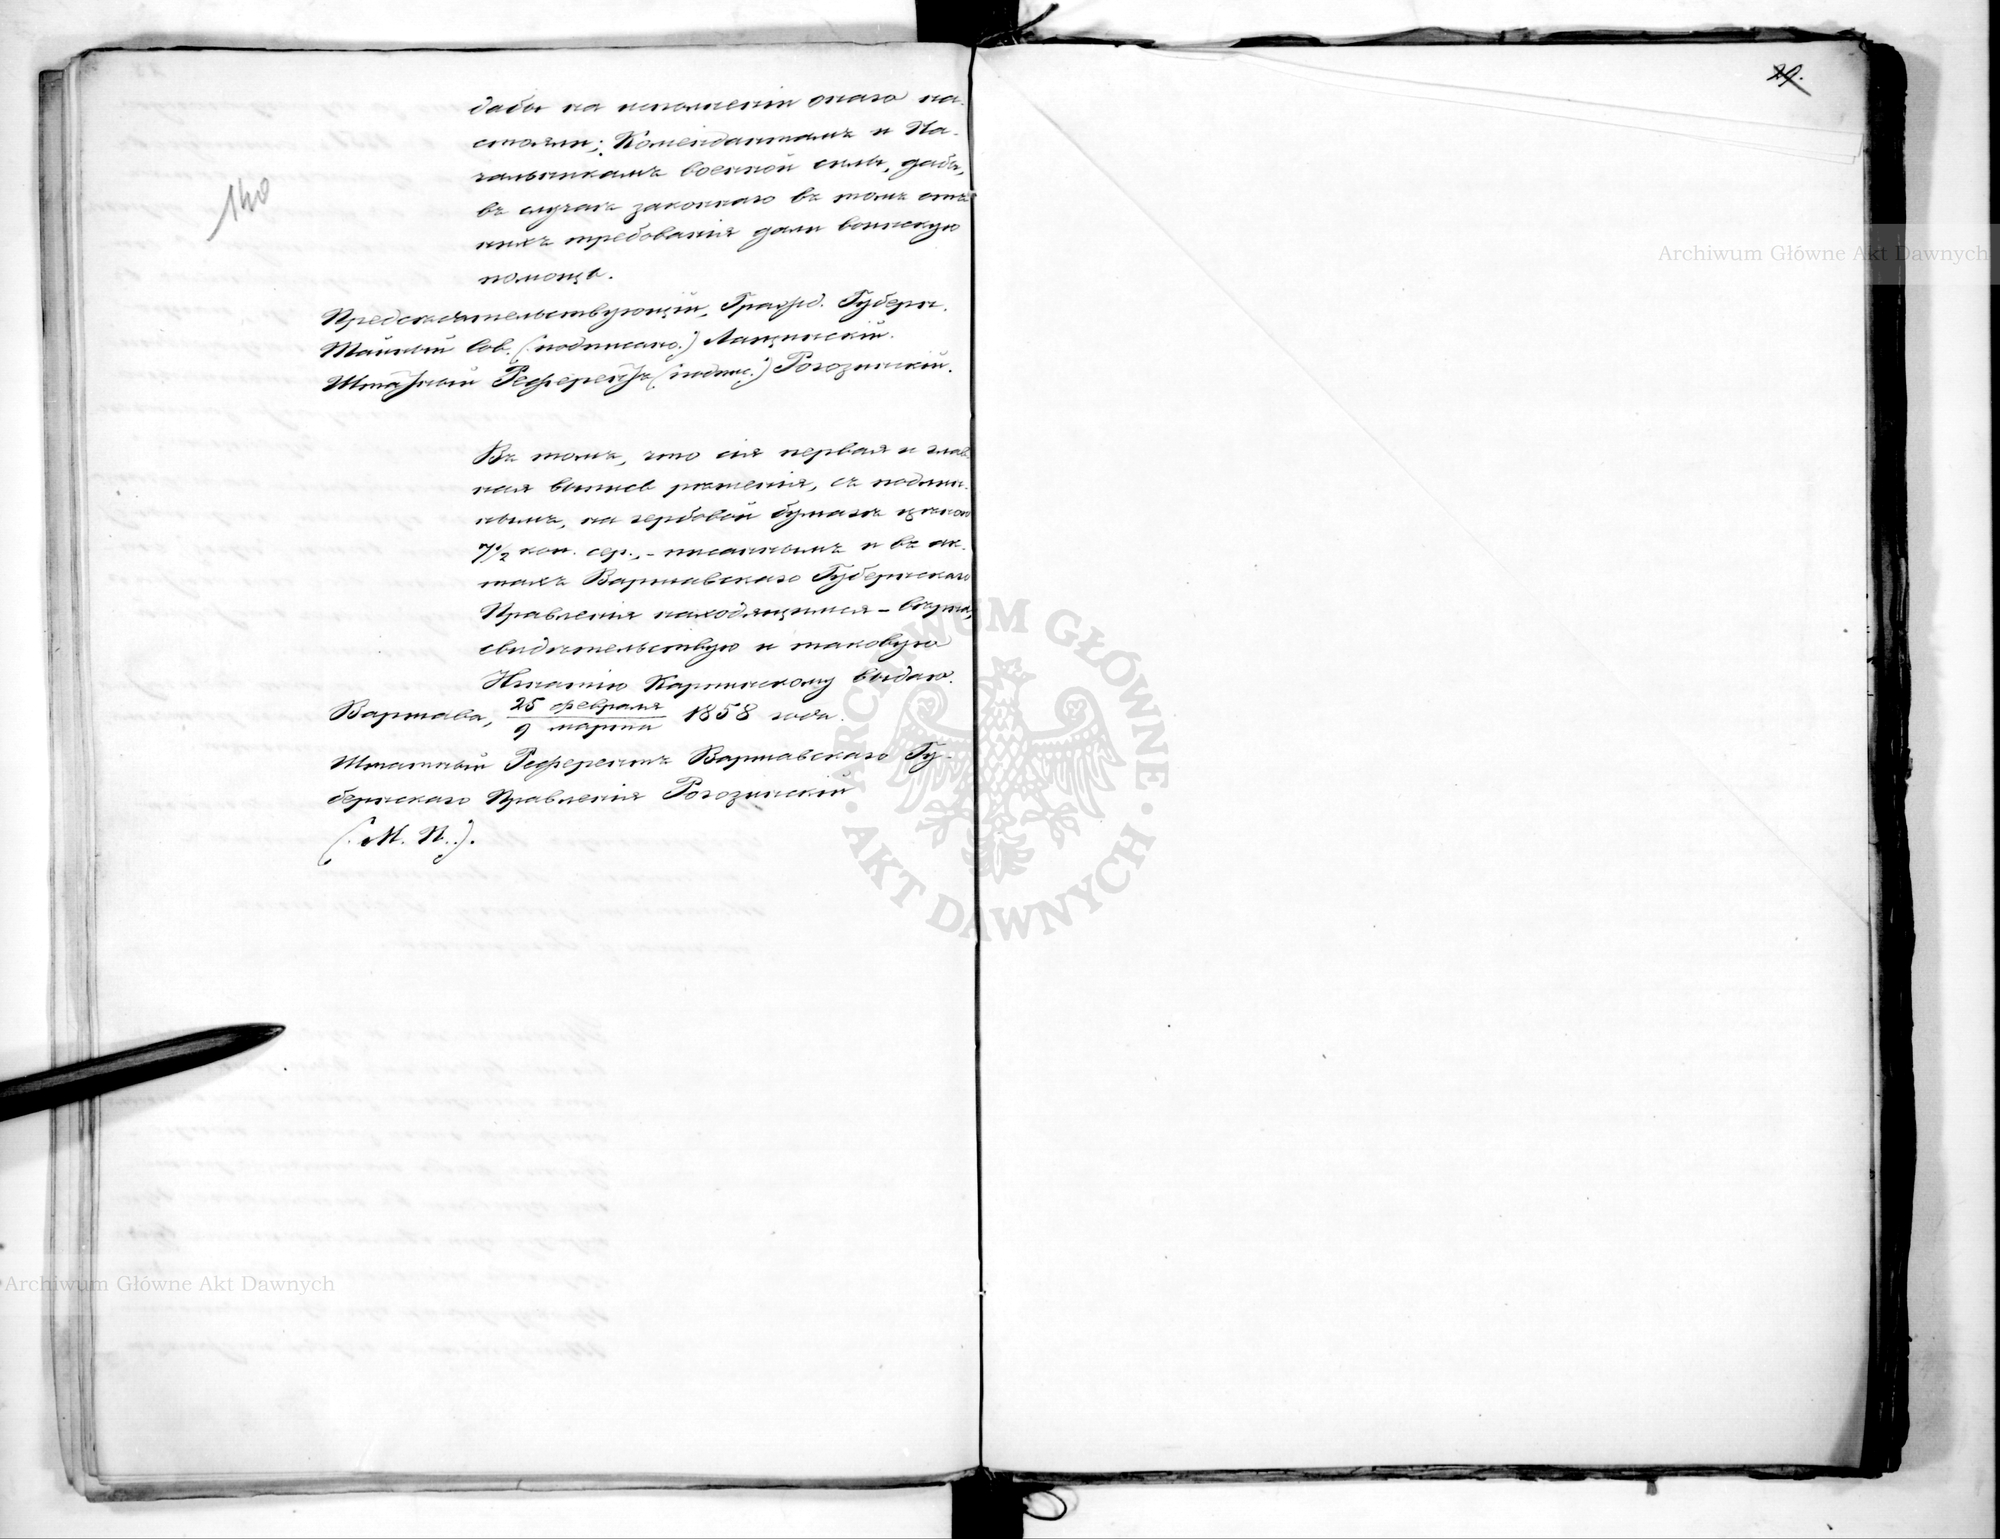 140
дабы на исполненіи онаго на-
стояли; Комендантамъ и На-
чальникамъ военной силы, дабы,
въ случаѣ законнаго въ томъ отъ
нихъ требованія дали воинскую
помощь.
Предсѣдательствующій, Гражд. Губерн.
Тайный Сов. (подписано.) Лащинскій.
Штатный Референтъ (подпис.) Рогозинскій.
Въ томъ, что сія первая и глав-
ная выпись рѣшенія, съ подлин-
нымъ, на гербовой бумагѣ цѣною
7½ коп. сер., - писаннымъ и въ ак-
тахъ Варшавскаго Губернскаго
Правленія находящимся - вѣрна,
свидѣтельствую и таковую
Игнатію Карпинскому выдаю.
Варшава, 25 февраля / 9 марта 1858 года.
Штатный Референтъ Варшавскаго Гу-
бернскаго Правленія Рогозинскій
(М. П.).
29.
Archiwum Główne Akt Dawnych
ARCHIWUM GŁÓWNE
· AKT DAWNYCH ·
Archiwum Główne Akt Dawnych